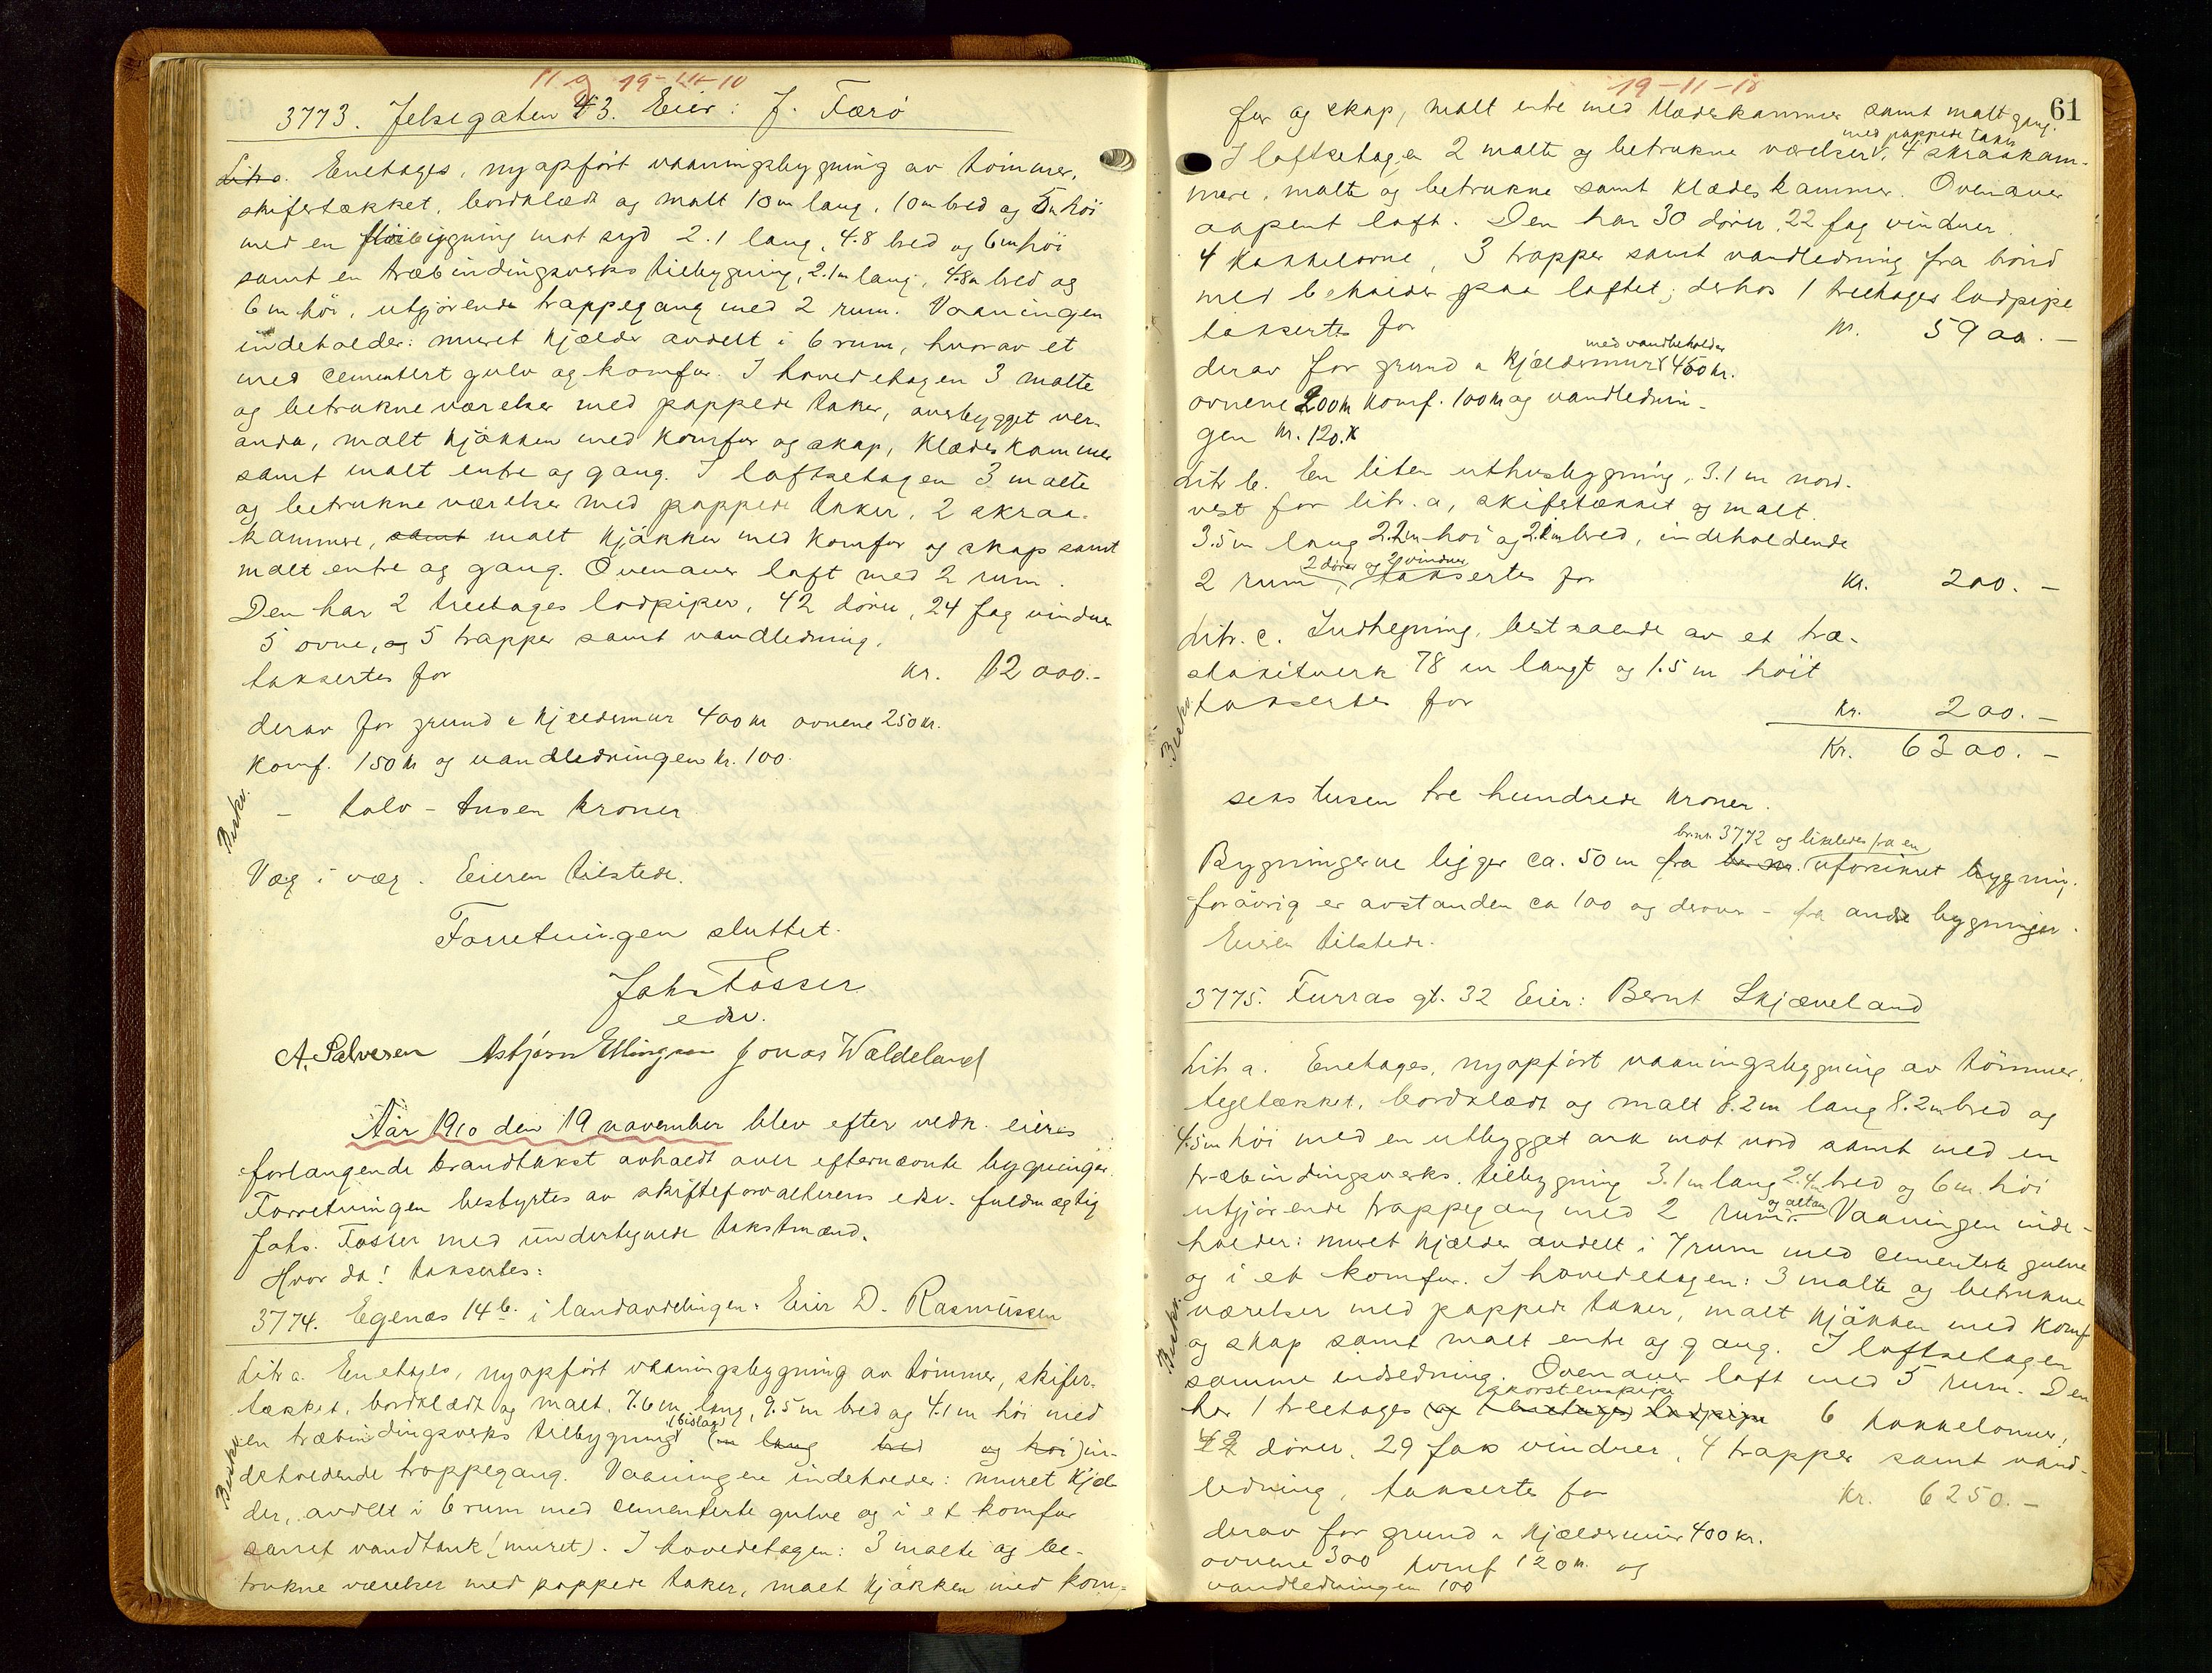 19-11-10
3773. Jelsegaten 43. Eier: J. Færö
Litr a. Enetages, nyopfört vaaningsbygning av tömmer,
skifertækket, bordklædt og malt 10 m lang, 10 m bred og 5 m höi
med en flöibygning mot syd 2.1 lang, 4.8 bred og 6 m höi
samt en træbindingsverks tilbygning, 2.1 m lang, 4.8 m bred og
6 m höi, utgjörende trappegang med 2 rum. Vaaningen
indeholder: muret kjælder avdelt i 6 rum, hvorav et
med cementert gulv og komfur. I hovedetagen 3 malte
og betrukne værelser med pappede taker, overbygget ver-
anda, malt kjökken med komfur og skap, klædeskammer
samt malt entre og gang. I loftsetagen 3 malte
og betrukne værelser med pappede taker, 2 skraa-
kammere, samt malt kjökken med komfur og skap samt
malt entre og gang. Ovenover loft med 2 rum.
Den har 2 treetages lodpiper, 42 dörer, 24 fag vinduer
5 ovne, og 5 trapper samt vandledning,
taksertes for kr. 12 000.-
derav for grund & kjældermur 400 kr ovnene 250 kr.
komf. 150 kr og vandledningen kr. 100.
Beskr.
- tolv - tusen kroner
Væg i væg. Eieren tilstede.
Forretningen sluttet.
Johs Tosser
edsv.
A. Salvesen Asbjörn Ellingsen Jonas Waldeland
Aar 1910 den 19 november blev efter vedk. eieres
forlangende brandtakst avholdt over efternævnte bygninger.
Forretningen bestyrtes av skifteforvalterens edsv. fuldmægtig
Johs. Tosser med undertegnede takstmænd.
Hvor da! taksertes:
3774. Egenæs 14 b. i landavdelingen. Eier D. Rasmussen
Litr a. Enetages, nyopfört vaaningsbygning av tömmer, skifer-
tækket, bordklædt og malt. 7.6 m lang, 9.5 m bred og 4.1 m höi med
(bislag)
en træbindingsverks tilbygning (m lang bred og höi) in-
deholdende trappegang. Vaaningen indeholder: muret kjæl-
Beskr.
der, avdelt i 6 rum med cementerte gulve og i et komfur
samt vandtank (muret). I hovedetagen: 3 malte og be-
trukne værelser med pappede taker, malt kjökken med kom-
19-11-10
61
fur og skap, malt entre med klædeskammer samt malt gang.
med pappede taker
I loftsetagen 2 malte og betrukne værelser, 4 skraakam-
mere, malte og betrukne samt klædeskammer. Ovenover
aapent loft. Den har 30 dörer, 22 fag vinduer.
4 kakkelovne, 3 trapper samt vandledning fra brönd
med beholder paa loftet; derhos 1 treetages lodpipe
taksertes for kr. 5900.-
med vandbeholder
derav for grund & kjældermur 460 kr.
ovnene 200 kr komf. 100 kr og vandlednin-
gen kr. 120.
Litr b. En liten uthusbygning, 3.1 m nord-
vest for litr. a, skifertækket og malt.
3.5 m lang 2.2 m höi og 2.1 m bred, indeholdende
2 dörer og 2 vinduer
2 rum, taksertes for kr. 200.-
Litr. c. Indhegning, bestaaende av et træ-
stakitverk 78 m langt og 1.5 m höit
taksertes for kr. 200.-
Beskr.
Kr. 6300.-
seks tusen tre hundrede kroner.
br.nr. 3772 og likeledes fra en
Bygningerne ligger ca. 50 m fra br. nr. uforsikret bygning.
forövrig er avstanden ca 100 og derover - fra andre bygninger.
Eieren tilstede.
3775. Furras gt. 32 Eier: Bernt Skjæveland
Litr a. Enetages, nyopfört vaaningsbygning av tömmer,
tegltækket, bordklædt og malt 8.2 m lang 8.2 m bred og
4.5 m höi med en utbygget ark mot nord samt med en
træbindingsverks tilbygning 3.1 m lang 2.4 m bred og 6 m höi
og altan
utgjörende trappegang med 2 rum. Vaaningen inde-
holder: muret kjælder avdelt i 7 rum med cementerte gulve
og i et komfur. I hovedetagen: 3 malte og betrukne
værelser med pappede taker, malt kjökken med komf
og skap samt malt entre og gang. I loftsetagen
Beskr.
samme indredning. Ovenover loft med 5 rum. Den
skorstenspipe
har 1 treetages (og 1 enetages) lodpipe 6 kakkelovner,
42 dörer, 29 fag vinduer, 4 trapper samt vand-
ledning, taksertes for kr. 6250.-
derav for grund & kjældermur 400 kr.
ovnene 300 komf 120 kr. og
vandledningen 100